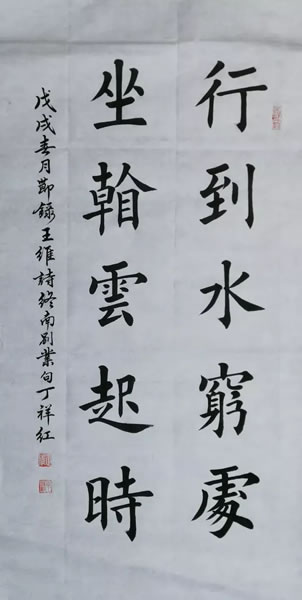 行到水窮處
坐㫪雲起時
戊戌春月節錄王維詩終南別業句丁祥红